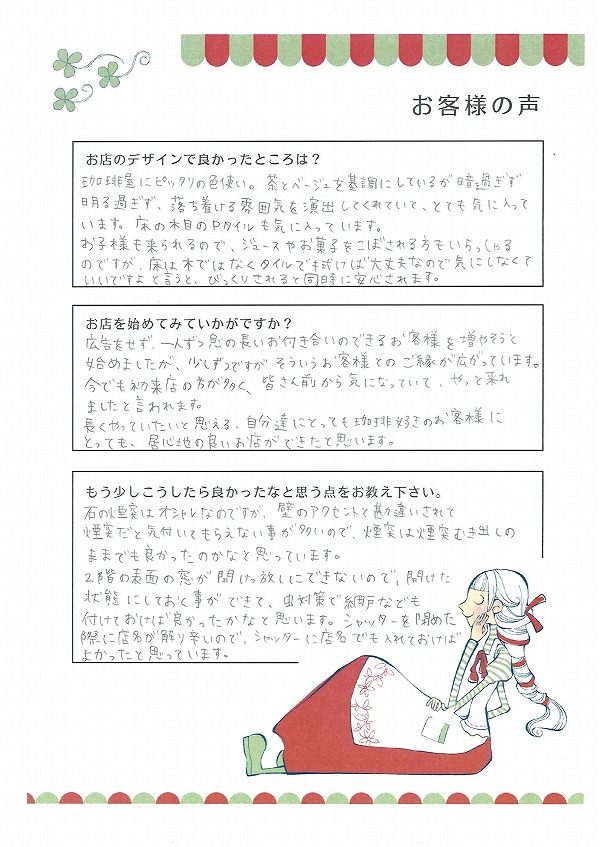 お客様の声
お店のデザインで良かったところは？
珈琲屋にピッタリの色使い。茶とベージュを基調にしているが暗過ぎず
明る過ぎず、落ち着ける雰囲気を演出してくれていて、とても気に入って
います。床の木目のPタイルも気に入っています。
お子様も来られるので、ジュースやお菓子をこぼされる方もいらっしゃる
のですが、床は木ではなくタイルで拭けば大丈夫なので気にしなくて
いいですよと言うと、びっくりされると同時に安心されます。
お店を始めてみていかがですか？
広告をせず、一人ずつ息の長いお付き合いのできるお客様を増やそうと
始めましたが、少しずつですがそういうお客様とのご縁が広がっています。
今でも初来店の方が多く、皆さん前から気になっていて、やっと来れ
ましたと言われます。
長くやっていたいと思える、自分達にとっても珈琲好きのお客様に
とっても、居心地の良いお店ができたと思います。
もう少しこうしたら良かったなと思う点をお教え下さい。
石の煙突はオシャレなのですが、壁のアクセントと勘違いされて
煙突だと気付いてもらえない事が多いので、煙突は煙突むき出しの
ままでも良かったのかなと思っています。
2階の表面の窓が開けっ放しにできないので、開けた
状態にしておく事ができて、虫対策で網戸なども
付けておけば良かったかなと思います。シャッターを閉めた
際に店名が解り辛いので、シャッターに店名でも入れておけば
よかったと思っています。